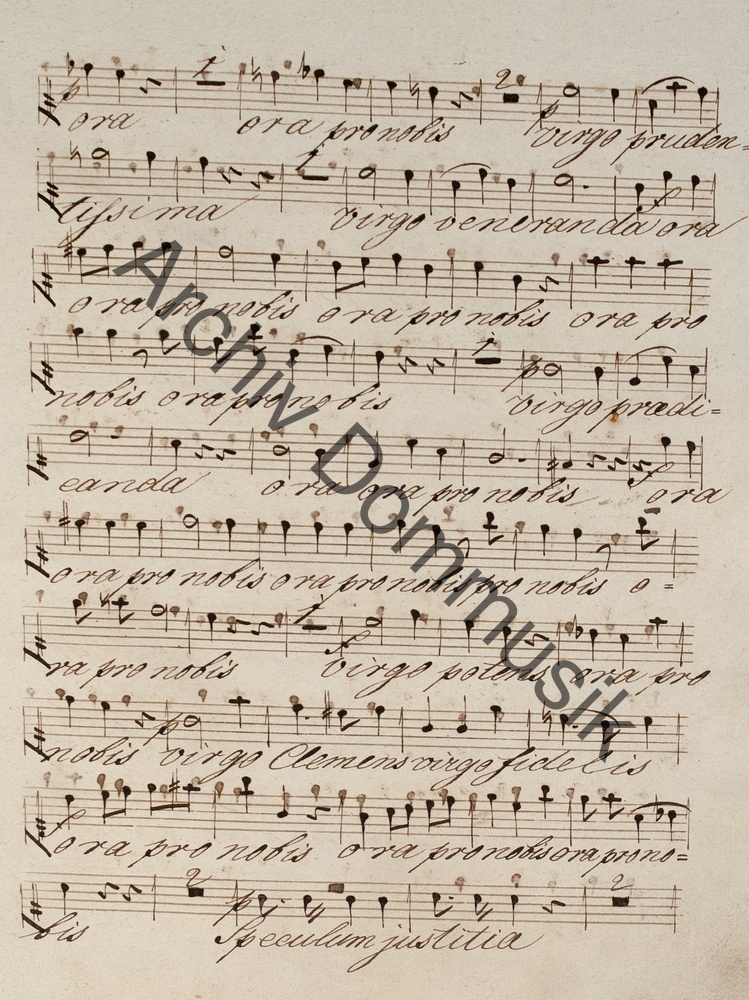 1 2
p p
ora ora pro nobis virgo pruden=
1
tissima virgo veneranda ora
f
ora pro nobis ora pro nobis ora pro
1
p
nobis ora pro nobis virgo prædi=
canda ora ora pro nobis ora
f
ora pro nobis ora pro nobis pro nobis o=
1
f
ra pro nobis virgo potens ora pro
p
nobis virgo Clemens virgo fidelis
f
ora pro nobis ora pro nobis ora pro no=
2 2
p
bis Speculum justitia
Archiv Dommusik